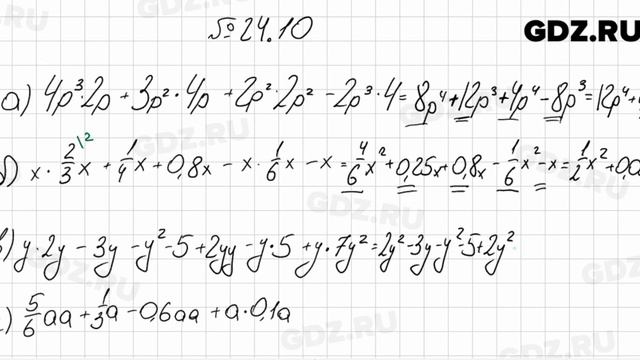 №24.10
GDZ.RU
а) 4p³·2p + 3p²·4p + 2p²·2p² − 2p³·4 = 8p⁴ + 12p³ + 4p⁴ − 8p³ = 12p⁴ +
б) x · 2/3 x + 1/4 x + 0,8x − x · 1/6 x − x = 4/6 x² + 0,25x + 0,8x − 1/6 x² − x = 1/2 x² + 0,0
в) y·2y − 3y − y²·5 + 2yy − y·5 + y·7y² = 2y² − 3y − y²·5 + 2y²
г) 5/6 aa + 1/3 a − 0,6aa + a·0,1a